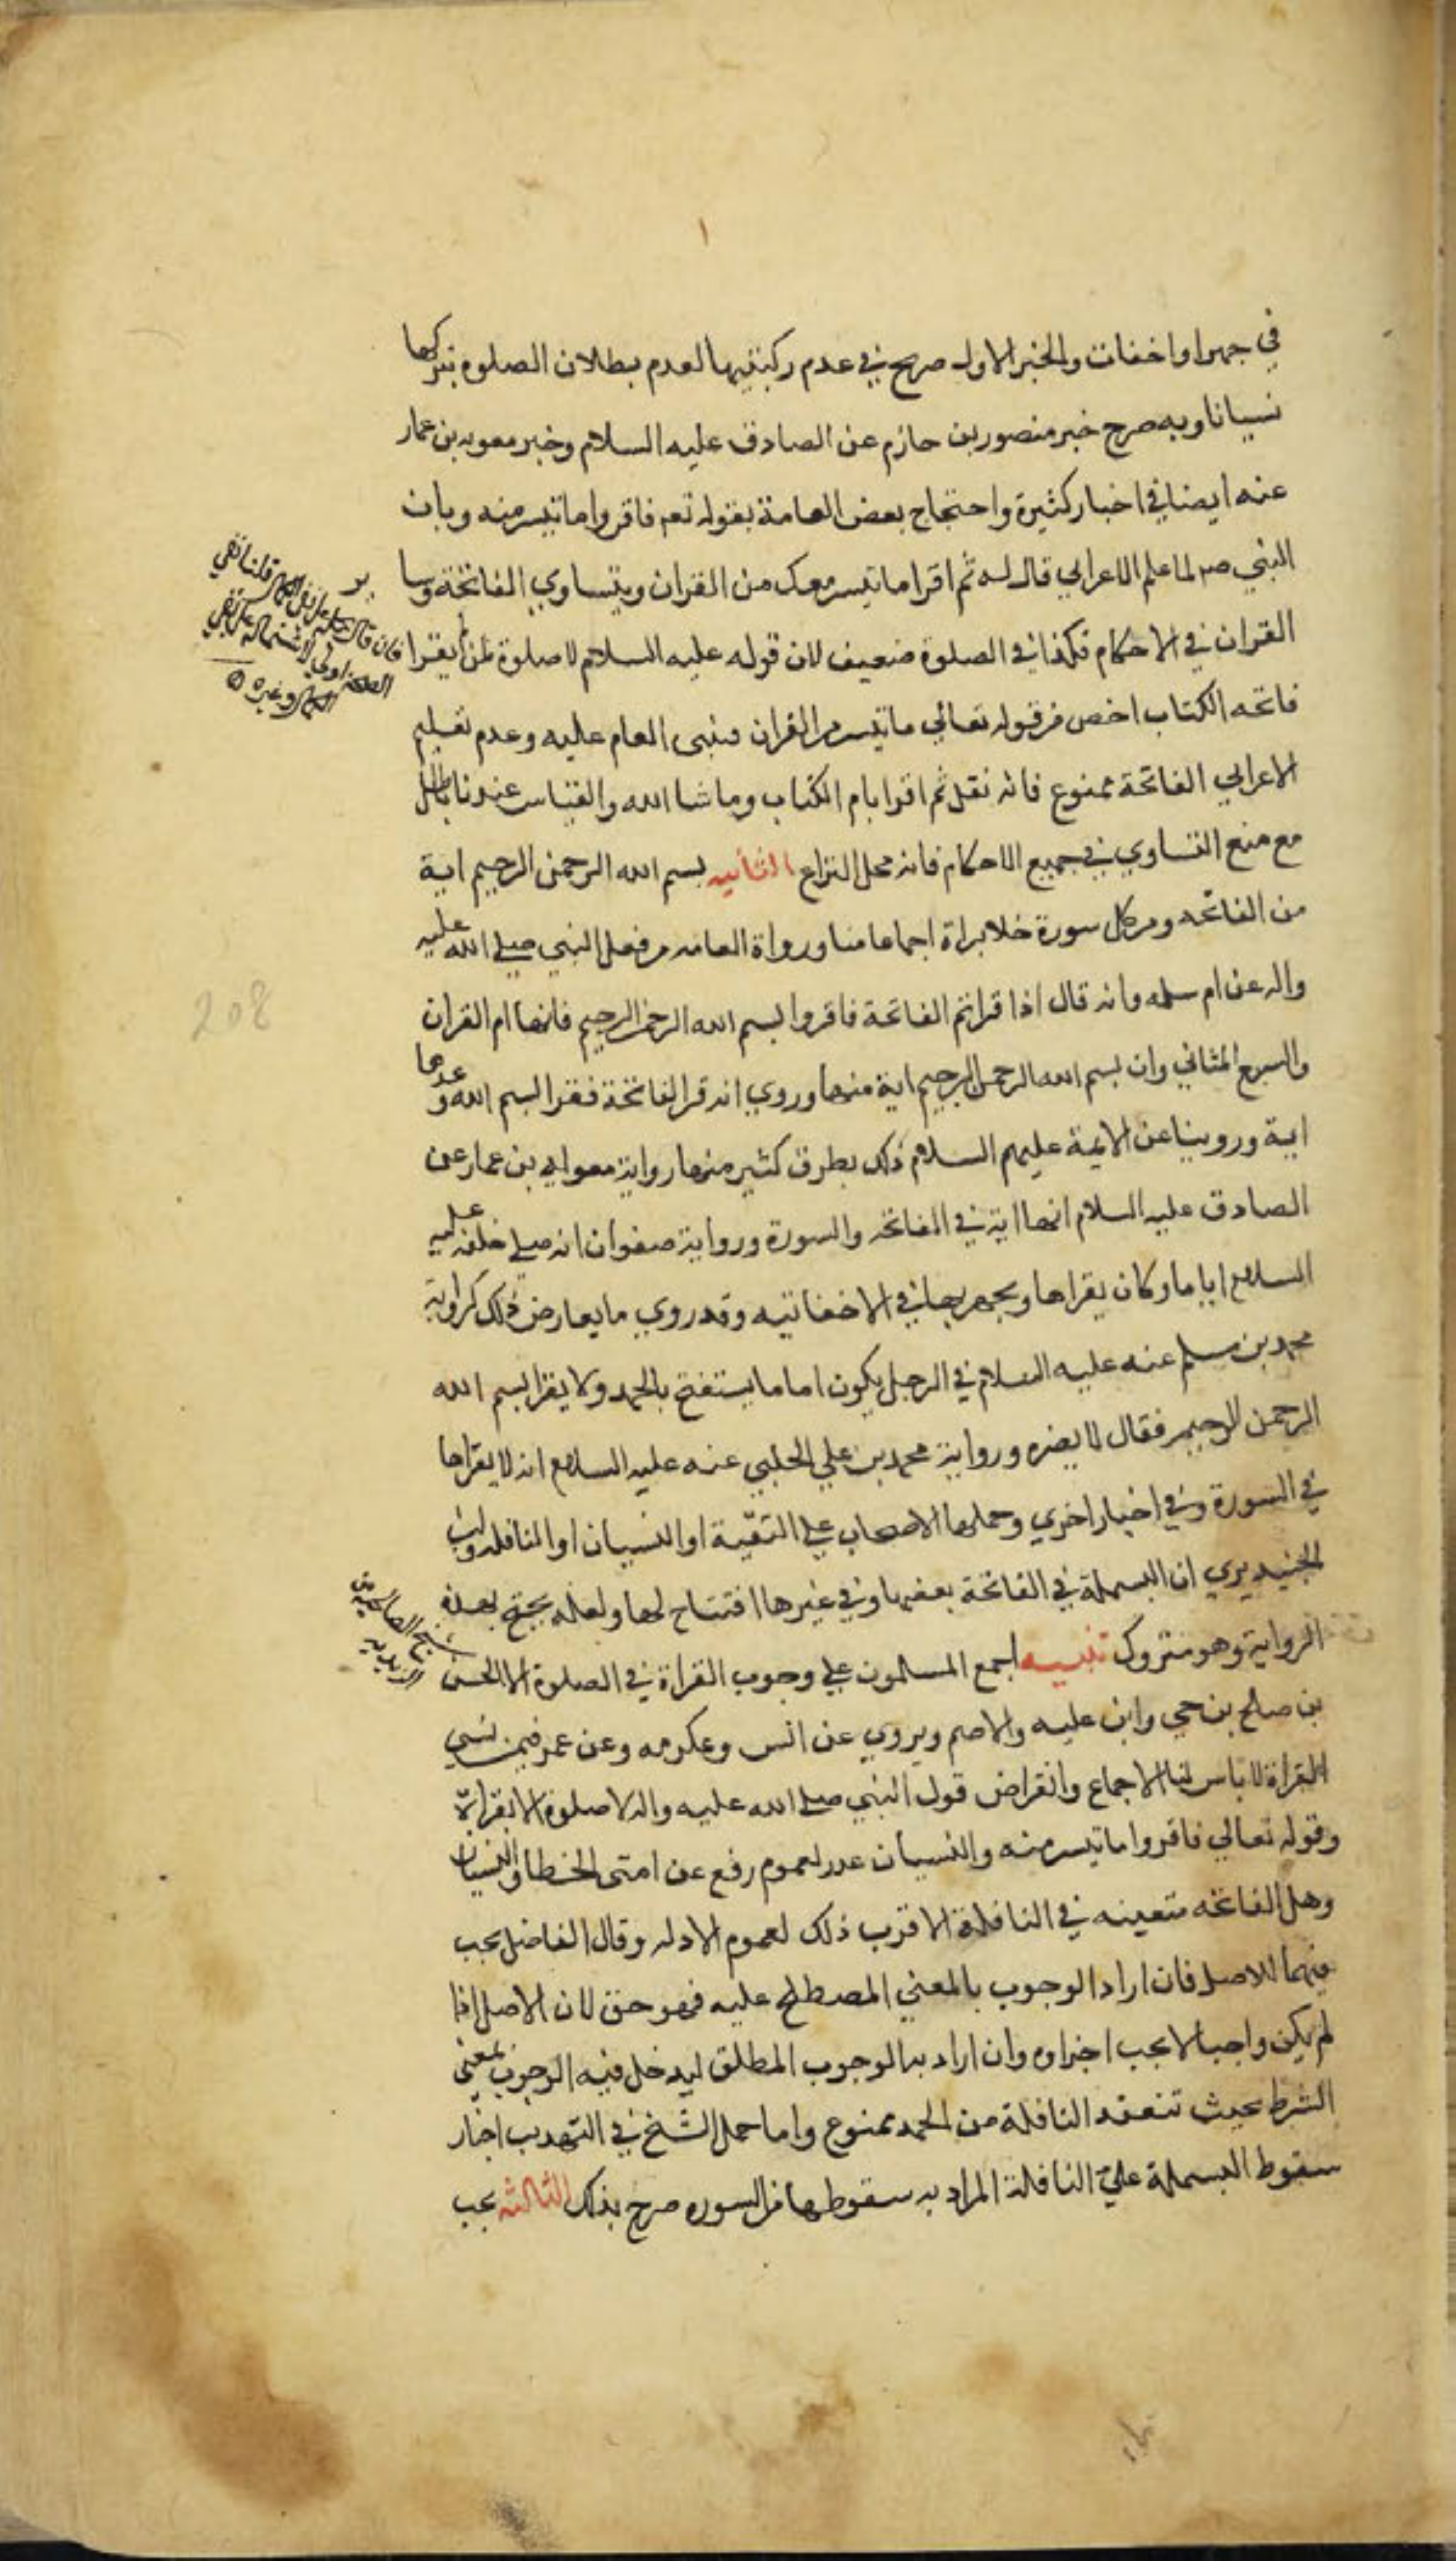 في جهر او اخفات والخبر الاول صريح في عدم ركنيتها لعدم بطلان الصلوة بتركها
نسيانا وبه صرح خبر منصور بن حازم عن الصادق عليه السلام وخبر معوية بن عمار
عنه ايضا في اخبار كثيرة واحتجاج بعض العامة بقوله تعم فاقروا ما تيسر منه وبان
النبي صم لما علم الاعرابي قال له ثم اقرا ما تيسر معك من القران وبتساوي الفاتحة وسا
القران في الاحكام فكذا في الصلوة ضعيف لان قوله عليه السلام لا صلوة لمن لم يقرا
فاتحه الكتاب اخص من قوله تعالي ما تيسر من القران فيبنى العام عليه وعدم تعليم
الاعرابي الفاتحة ممنوع فانه نقل ثم اقرا بام الكتاب وما شا الله والقياس عندنا باطل
مع منع التساوي في جميع الاحكام فانه محل النزاع الثانيه بسم الله الرحمن الرحيم اية
من الفاتحه ومن كل سورة خلا براة اجماعا منا ورواة العامه من فعل النبي صلي الله عليه
واله عن ام سلمه وانه قال اذا قراتم الفاتحة فاقروا بسم الله الرحمن الرحيم فانها ام القران
والسبع المثاني وان بسم الله الرحمن الرحيم اية منها وروي انه قرا الفاتحة فقرا بسم الله وعدها
اية وروينا عن الايمة عليهم السلام ذلك بطرق كثير منها رواية معوية بن عمار عن
الصادق عليه السلام انها اية في الفاتحه والسورة ورواية صفوان انه صلي خلفه عليه
السلام اياما وكان يقراها ويجهر بها في الاخفاتيه وقد روي ما يعارض ذلك كرواية
محمد بن مسلم عنه عليه السلام في الرجل يكون اماما يستفتح بالحمد ولا يقرا بسم الله
الرحمن الرحيم فقال لا يضره ورواية محمد بن علي الحلبي عنه عليه السلام انه لا يقراها
في السورة وفي اخبار اخري وحملها الاصحاب علي التقية او النسيان او النافلة وابن
الجنيد يري ان البسملة في الفاتحة بعضها وفي غيرها افتتاح لها ولعله يحتج بهذه
الرواية وهو متروك تنبيه اجمع المسلمون علي وجوب القراة في الصلوة الا الحسن
بن صالح بن حي وابن عليه والاصم ويروي عن انس وعكرمه وعن عمر فيمن نسي
القراة لا باس لنا الاجماع وانقراض قول النبي صلي الله عليه واله لا صلوة الا بقراة
وقوله تعالي فاقروا ما تيسر منه والنسيان عذر لعموم رفع عن امتي الخطا والنسيان
وهل الفاتحه متعينه في النافلة الاقرب ذلك لعموم الادله وقال الفاضل يجب
فيها للاصل فان اراد الوجوب بالمعني المصطلح عليه فهو حق لان الاصل اذا
لم يكن واجبا لا يجب اجزاوه وان اراد به الوجوب المطلق ليدخل فيه الوجوب بمعني
الشرط بحيث تنعقد النافلة من الحمد ممنوع واما حمل الشيخ في التهذيب اخبار
سقوط البسملة علي النافلة المراد به سقوطها من السوره صرح بذلك الثالثه يجب
فان قال نحمله علي نفي الكمال قلنا نفي
الصحة اولي لاشتماله علي نفي
الكمال وغيره
شيخ الصالحية من
الزيدية
208